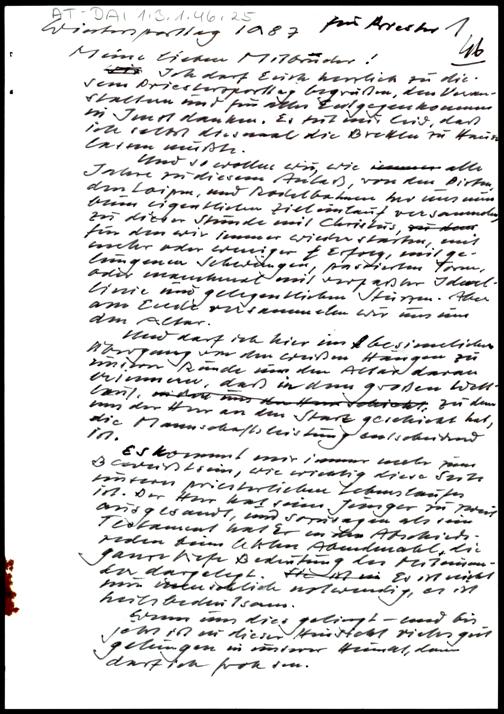 AT-DAI 1.3.1.46.25
Wintersporttag 1987 für Priester 1
46
Meine lieben Mitbrüder!
Ich darf Euch herzlich zu die-
sem Priestersporttag begrüßen, den Veran-
staltern und für alles Entgegenkommen
in Imst danken. Es tut mir leid, daß
ich selbst diesmal die Brettln zu Hause
lassen mußte.
Und so wollen wir, wie immer alle
Jahre zu diesem Anlaß, von den Pisten,
den Loipen, und Rodelbahnen her uns nun
beim eigentlichen Zieleinlauf versammeln
zu dieser Stunde mit Christus,
für den wir immer wieder starten, mit
mehr oder weniger Erfolg, mit ge-
lungenen Schwüngen, passierten Toren,
oder manchmal mit verpaßter Ideal-
linie und gelegentlichen Stürzen. Aber
am Ende versammeln wir uns um
den Altar.
Und darf ich hier im besinnlichen
Übergang von den weißen Hängen zu
unserer Runde um den Altar daran
erinnern, daß in dem großen Welt-
lauf, zu dem
uns der Herr an den Start geschickt hat,
die Mannschaftsleistung entscheidend
ist.
Es kommt mir immer mehr zum
Bewußtsein, wie wichtig diese Seite
unseres priesterlichen Lebenslaufes
ist. Der Herr hat seine Jünger zu zweit
ausgesandt, und sozusagen als sein
Testament hat Er in den Abschieds-
reden beim letzten Abendmahl, die
ganze tiefe Bedeutung des Miteinan-
der dargelegt. Es ist nicht
nur menschlich notwendig, es ist
heilsbedeutsam.
Wenn uns dies gelingt – und bis
jetzt ist in dieser Hinsicht vieles gut
gelungen in unserer Heimat, dann
darf ich froh sein.